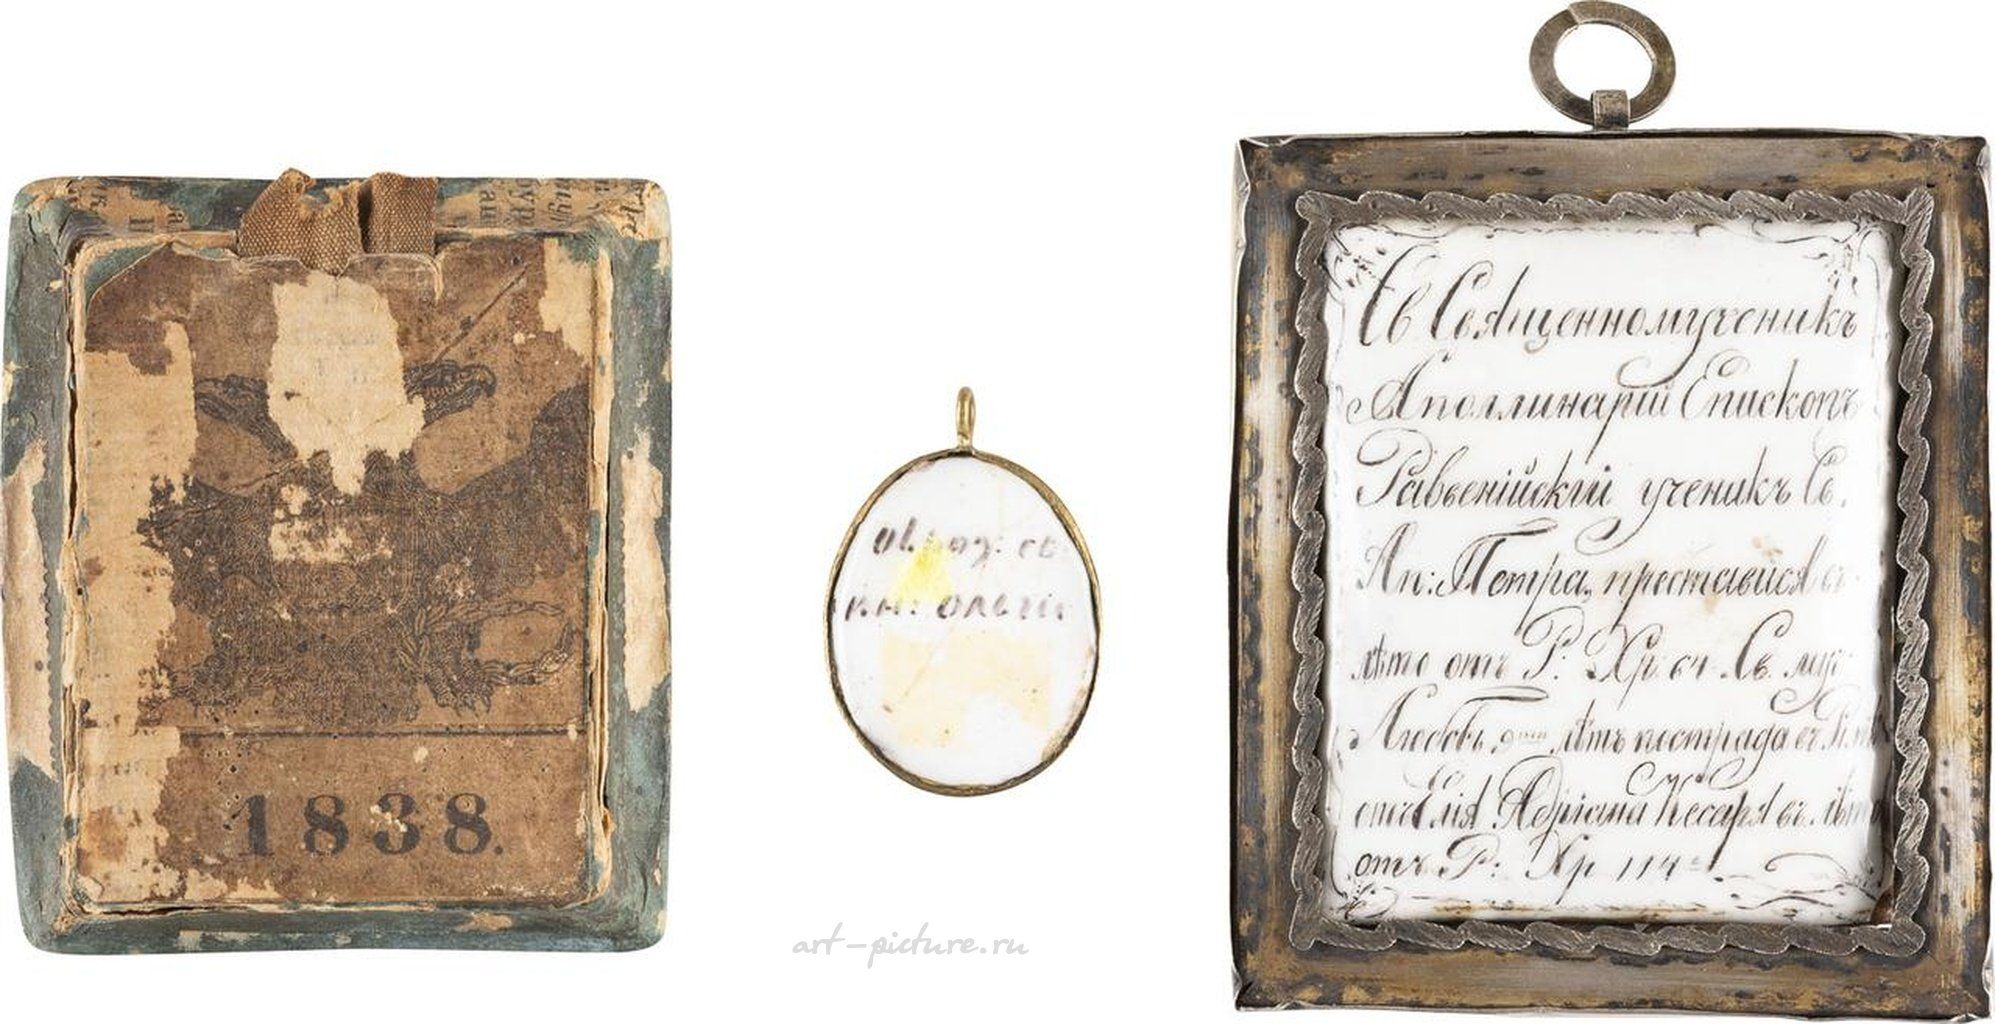 1838.
св.
кн: ольги
Св Священномученикъ
Аполлинарій Епископъ
Равѣенійскій ученикъ Св.
Ап: Петра, преставися въ
лѣто отъ Р: Хр: 64 Св. муч:
Любовь 9 лѣтъ пострада въ
отъ Елія Адріана Кесаря въ лѣто
отъ Р: Хр 114
art-picture.ru